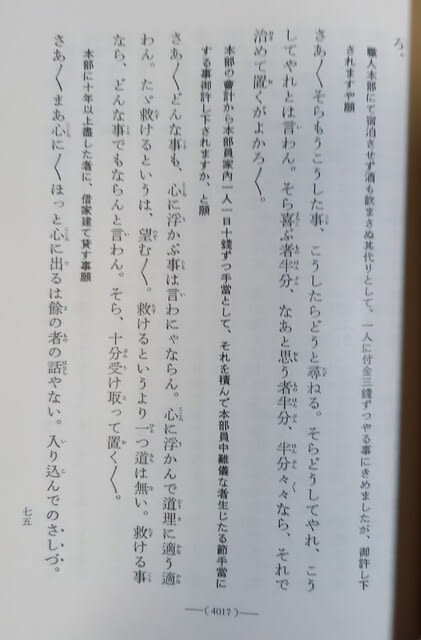 ろ。
職人本部にて宿泊させず酒も飲まさぬ其代りとして、一人に付金三錢ずつやる事にきめましたが、御許し下
されますや願
さあ〳〵そらもうこうした事、こうしたらどうと尋ねる。そらどうしてやれ、こう
してやれとは言わん。そら喜ぶ者半分、なあと思う者半分、半分々々なら、それで
治めて置くがよかろ〳〵。
本部の會計から本部員家內一人一日十錢ずつ手當として、それを積んで本部員中難儀な者生じたる節手當に
する事御許し下されますか、と願
さあ〳〵どんな事も、心に浮かぶ事は言わにゃならん。心に浮かんで道理に適う適
わん。たゞ救けるというは、望む〳〵。救けるというより一つ道は無い。救ける事
なら、どんな事でもならんと言わん。そら、十分受け取って置く〳〵。
本部に十年以上盡した者に、借家建て貸す事願
さあ〳〵まあ心に〳〵ほっと心に出るは餘の者の話やない。入り込んでのさしづ。
七五
(4017)